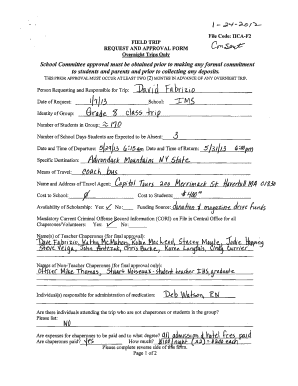 1-24-2012
Consent
File Code: IICA-F2
FIELD TRIP
REQUEST AND APPROVAL FORM
Overnight Trips Only
School Committee approval must be obtained prior to making any formal commitment
to students and parents and prior to collecting any deposits.
THIS PRIOR APPROVAL MUST OCCUR AT LEAST TWO (2) MONTHS IN ADVANCE OF ANY OVERNIGHT TRIP.
Person Requesting and Responsible for Trip: David Fabrizio
Date of Request: 1/7/13 School: IMS
Identity of Group: Grade 8 class trip
Number of Students in Group: ≈ 170
Number of School Days Students are Expected to be Absent: 3
Date and Time of Departure: 5/29/13 6:15am Date and Time of Return: 5/31/13 6:30pm
Specific Destination: Adirondack Mountains NY State
Means of Travel: coach bus
Name and Address of Travel Agent: Capitol Tours 200 Merrimack St Haverhill MA 01830
Cost to School: 0 Cost to Students: $400
Availability of Scholarship: Yes ✓ No: Funding Source: donation & magazine drive funds
Mandatory Current Criminal Offense Record Information (CORI) on File in Central Office for all
Chaperones/Volunteers: Yes ✓ No:
Name(s) of Teacher Chaperones (for final approval):
Dave Fabrizio, Kathy McMahon, Robin MacLeod, Stacey Moyle, Jodie
Steve Veiga, John Antczak, Chris Burke, Karen Langlais, Cindy Currier
Names of Non-Teacher Chaperones (for final approval):
Officer Mike Thomas, Stuart - student teacher IMS graduate
Individual(s) responsible for administration of medication: Deb Watson, RN
Are there individuals attending the trip who are not chaperones or students in the group?
Please list:
NO
Are expenses for chaperones to be paid and to what degree? all admissions & hotel fees paid
Are chaperones paid? yes How much? $100/night (x2) = $200 each
Please complete reverse side of this form.
Page 1 of 2